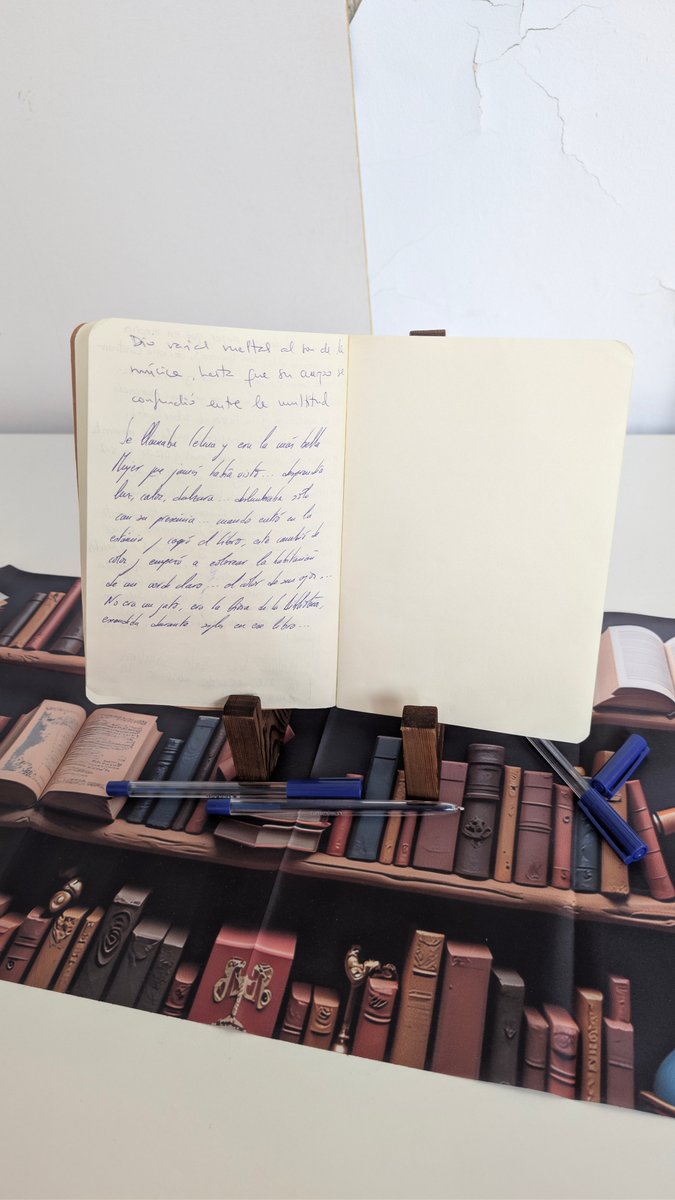 Dio varias vueltas al son de la
música, hasta que su cuerpo se
confundió entre la multitud
Se llamaba y era la más bella
Mujer que jamás había visto... desprendía
luz, calor, dulzura... deslumbraba sólo
con su presencia... cuando entró en la
estancia y cogió el libro, este cambió de
color, y empezó a colorear la habitación
de un verde claro,... el color de sus ojos...
No era un gato, era la Diosa de la
escondida durante siglos en ese libro...